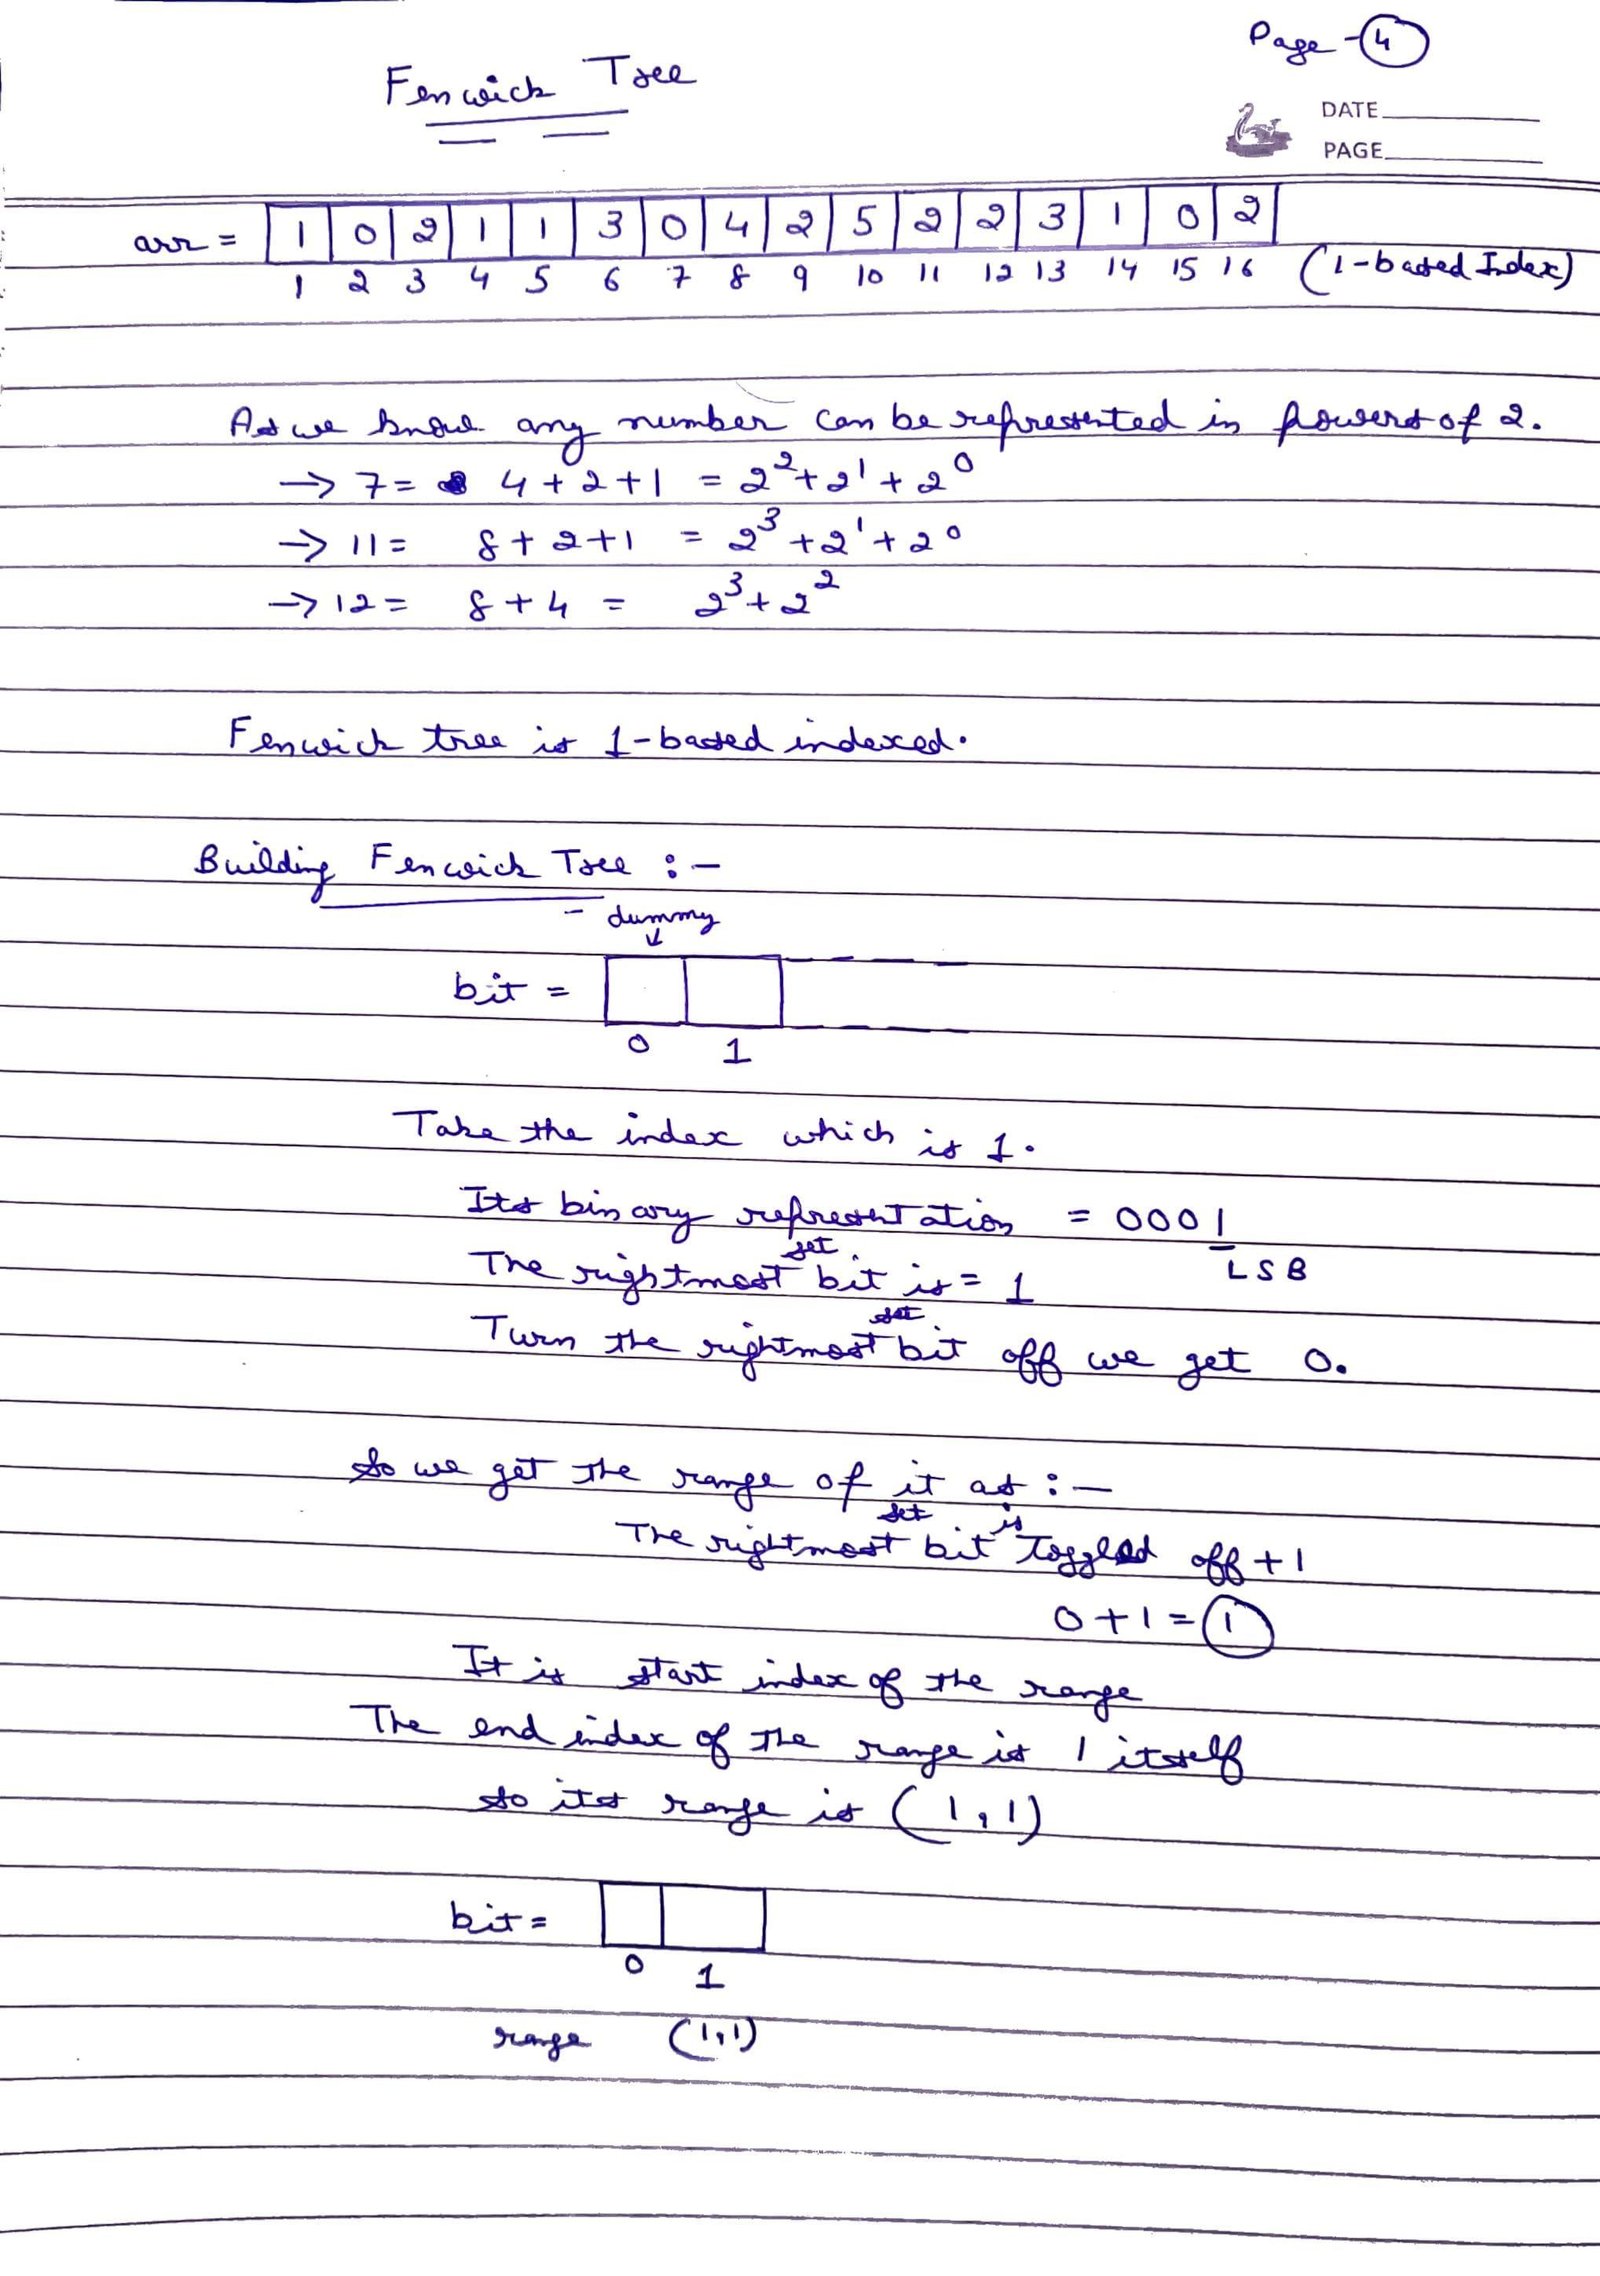 Page - 4
Fenwick Tree
DATE
PAGE
arr = 1 0 2 1 1 3 0 4 2 5 2 2 3 1 0 2
1 2 3 4 5 6 7 8 9 10 11 12 13 14 15 16 (1-based Index)
As we know any number can be represented in powers of 2.
→ 7 = 4 + 2 + 1 = 2² + 2¹ + 2⁰
→ 11 = 8 + 2 + 1 = 2³ + 2¹ + 2⁰
→ 12 = 8 + 4 = 2³ + 2²
Fenwick tree is 1-based indexed.
Building Fenwick Tree :-
dummy
bit =
0 1
Take the index which is 1.
Its binary representation = 0001
LSB
The rightmost set bit is = 1
Turn the rightmost set bit off we get 0.
So we get the range of it as :-
The rightmost set bit is toggled off + 1
0 + 1 = 1
It is start index of the range
The end index of the range is 1 itself
So its range is (1,1)
bit =
0 1
range (1,1)